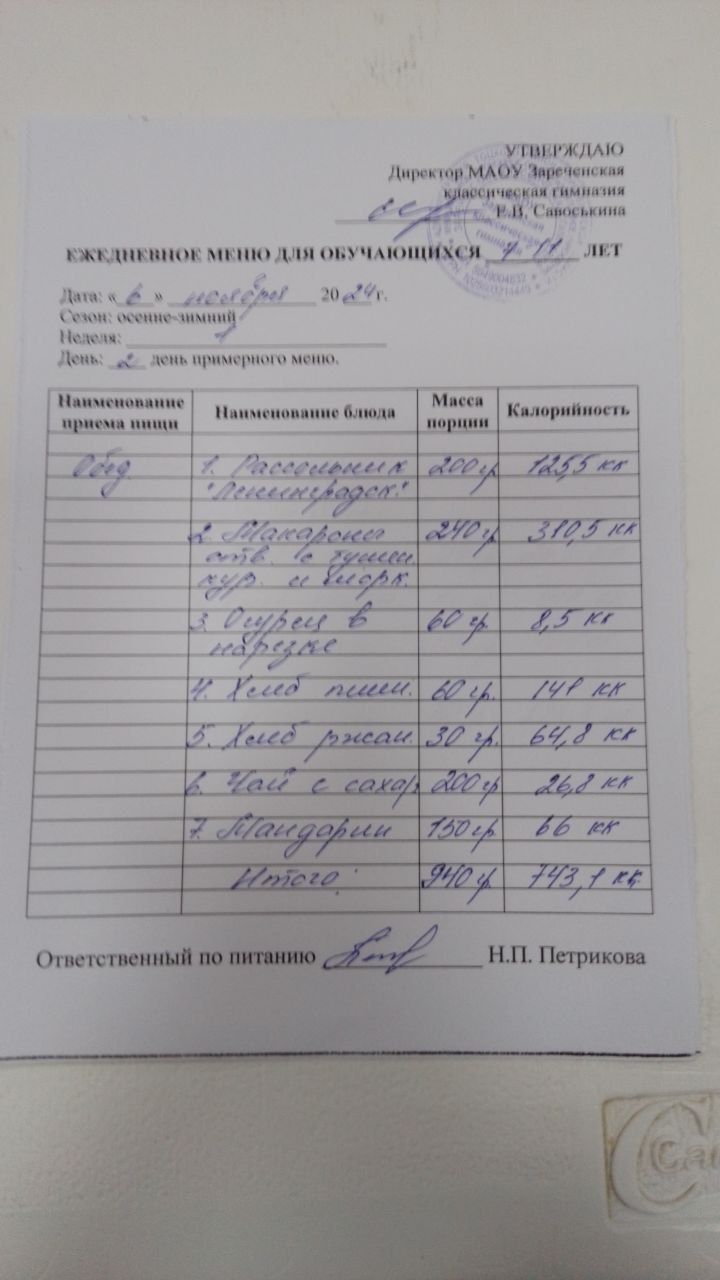 УТВЕРЖДАЮ
Директор МАОУ Зареченская
классическая гимназия
Е.В. Савоськина
ЕЖЕДНЕВНОЕ МЕНЮ ДЛЯ ОБУЧАЮЩИХСЯ 7-11 ЛЕТ
Дата: « 6 » ноября 2024 г.
Сезон: осенне-зимний
Неделя: 1
День: 2 день примерного меню.
Наименование приема пищи Наименование блюда Масса порции Калорийность
Обед 1. Рассольник 200 гр 125,5 кк
"Ленинградск."
2. Макароны 240 гр 310,5 кк
отв. с тушен.
кур. и морк.
3. Огурец в 60 гр. 8,5 кк
нарезке
4. Хлеб пшен. 60 гр. 141 кк
5. Хлеб ржан. 30 гр. 64,8 кк
6. Чай с сахар. 200 гр 26,8 кк
7. Мандарин 150 гр 66 кк
Итого: 940 гр. 743,1 кк.
Ответственный по питанию Н.П. Петрикова